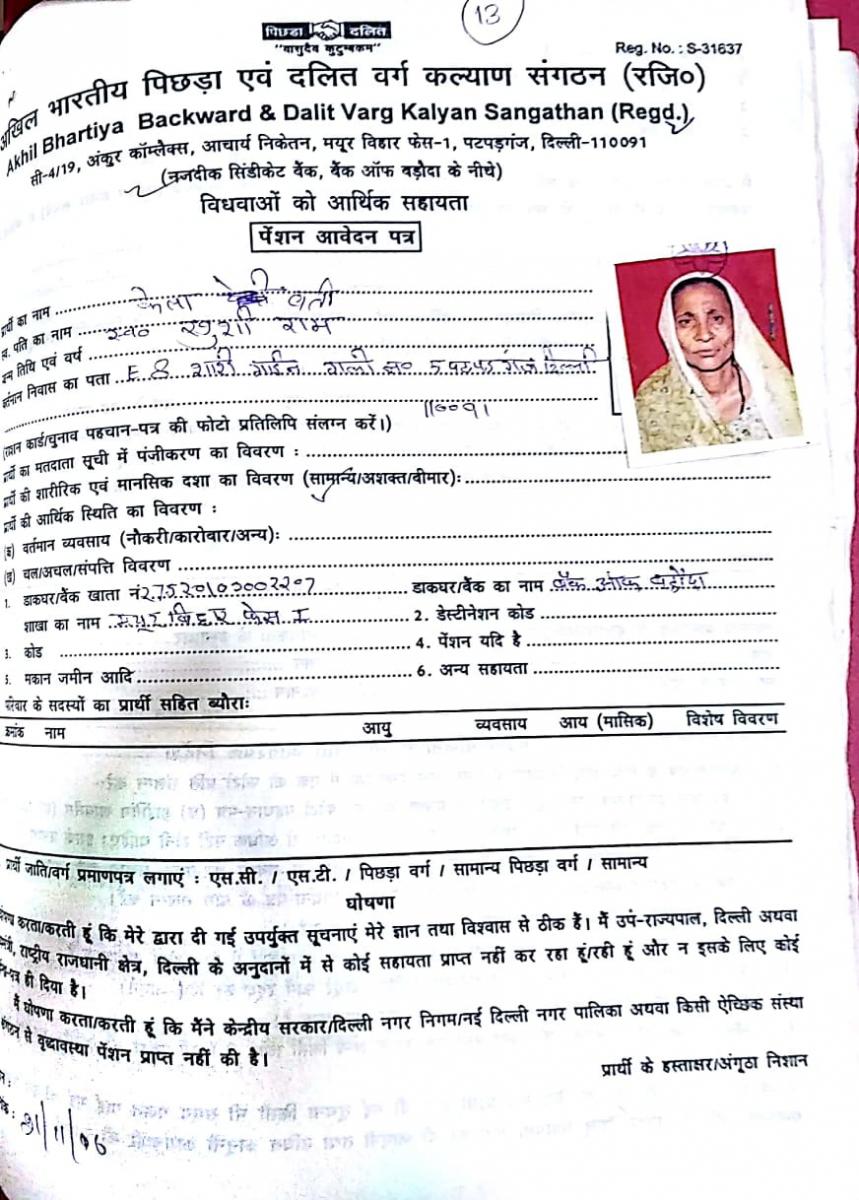 13
पिछड़ा दलित
"वासुदेव कुटुम्बकम"
Reg. No. : S-31637
अखिल भारतीय पिछड़ा एवं दलित वर्ग कल्याण संगठन (रजि०)
Akhil Bhartiya Backward & Dalit Varg Kalyan Sangathan (Regd.)
सी-4/19, अंकुर कॉम्लैक्स, आचार्य निकेतन, मयूर विहार फेस-1, पटपड़गंज, दिल्ली-110091
(नजदीक सिंडीकेट बैंक, बैंक ऑफ बड़ौदा के नीचे)
विधवाओं को आर्थिक सहायता
पेंशन आवेदन पत्र
प्रार्थी का नाम केला वती
स्व. पति का नाम स्व० खुशी राम
जन्म तिथि एवं वर्ष
वर्तमान निवास का पता E 8 गली न० 5 दिल्ली
110091
(राशन कार्ड/चुनाव पहचान-पत्र की फोटो प्रतिलिपि संलग्न करें।)
प्रार्थी का मतदाता सूची में पंजीकरण का विवरण :
प्रार्थी की शारीरिक एवं मानसिक दशा का विवरण (सामान्य/अशक्त/बीमार):
प्रार्थी की आर्थिक स्थिति का विवरण :
वर्तमान व्यवसाय (नौकरी/कारोबार/अन्य):
चल/अचल/संपत्ति विवरण
1. डाकघर/बैंक खाता नं. डाकघर/बैंक का नाम बैंक ऑफ बड़ोदा
शाखा का नाम मयूर विहार फेस I 2. डेस्टीनेशन कोड
3. कोड 4. पेंशन यदि है
5. मकान जमीन आदि 6. अन्य सहायता
परिवार के सदस्यों का प्रार्थी सहित ब्योराः
क्रमांक नाम आयु व्यवसाय आय (मासिक) विशेष विवरण
प्रार्थी जाति/वर्ग प्रमाणपत्र लगाएं : एस.सी. / एस.टी. / पिछड़ा वर्ग / सामान्य पिछड़ा वर्ग / सामान्य
घोषणा
करता/करती हूं कि मेरे द्वारा दी गई उपर्युक्त सूचनाएं मेरे ज्ञान तथा विश्वास से ठीक हैं। मैं उप-राज्यपाल, दिल्ली अथवा
राष्ट्रीय राजधानी क्षेत्र, दिल्ली के अनुदानों में से कोई सहायता प्राप्त नहीं कर रहा हूं/रही हूं और न इसके लिए कोई
ही दिया है।
मैं घोषणा करता/करती हूं कि मैंने केन्द्रीय सरकार/दिल्ली नगर निगम/नई दिल्ली नगर पालिका अथवा किसी ऐच्छिक संस्था
से वृध्दावस्था पेंशन प्राप्त नहीं की है।
प्रार्थी के हस्ताक्षर/अंगूठा निशान